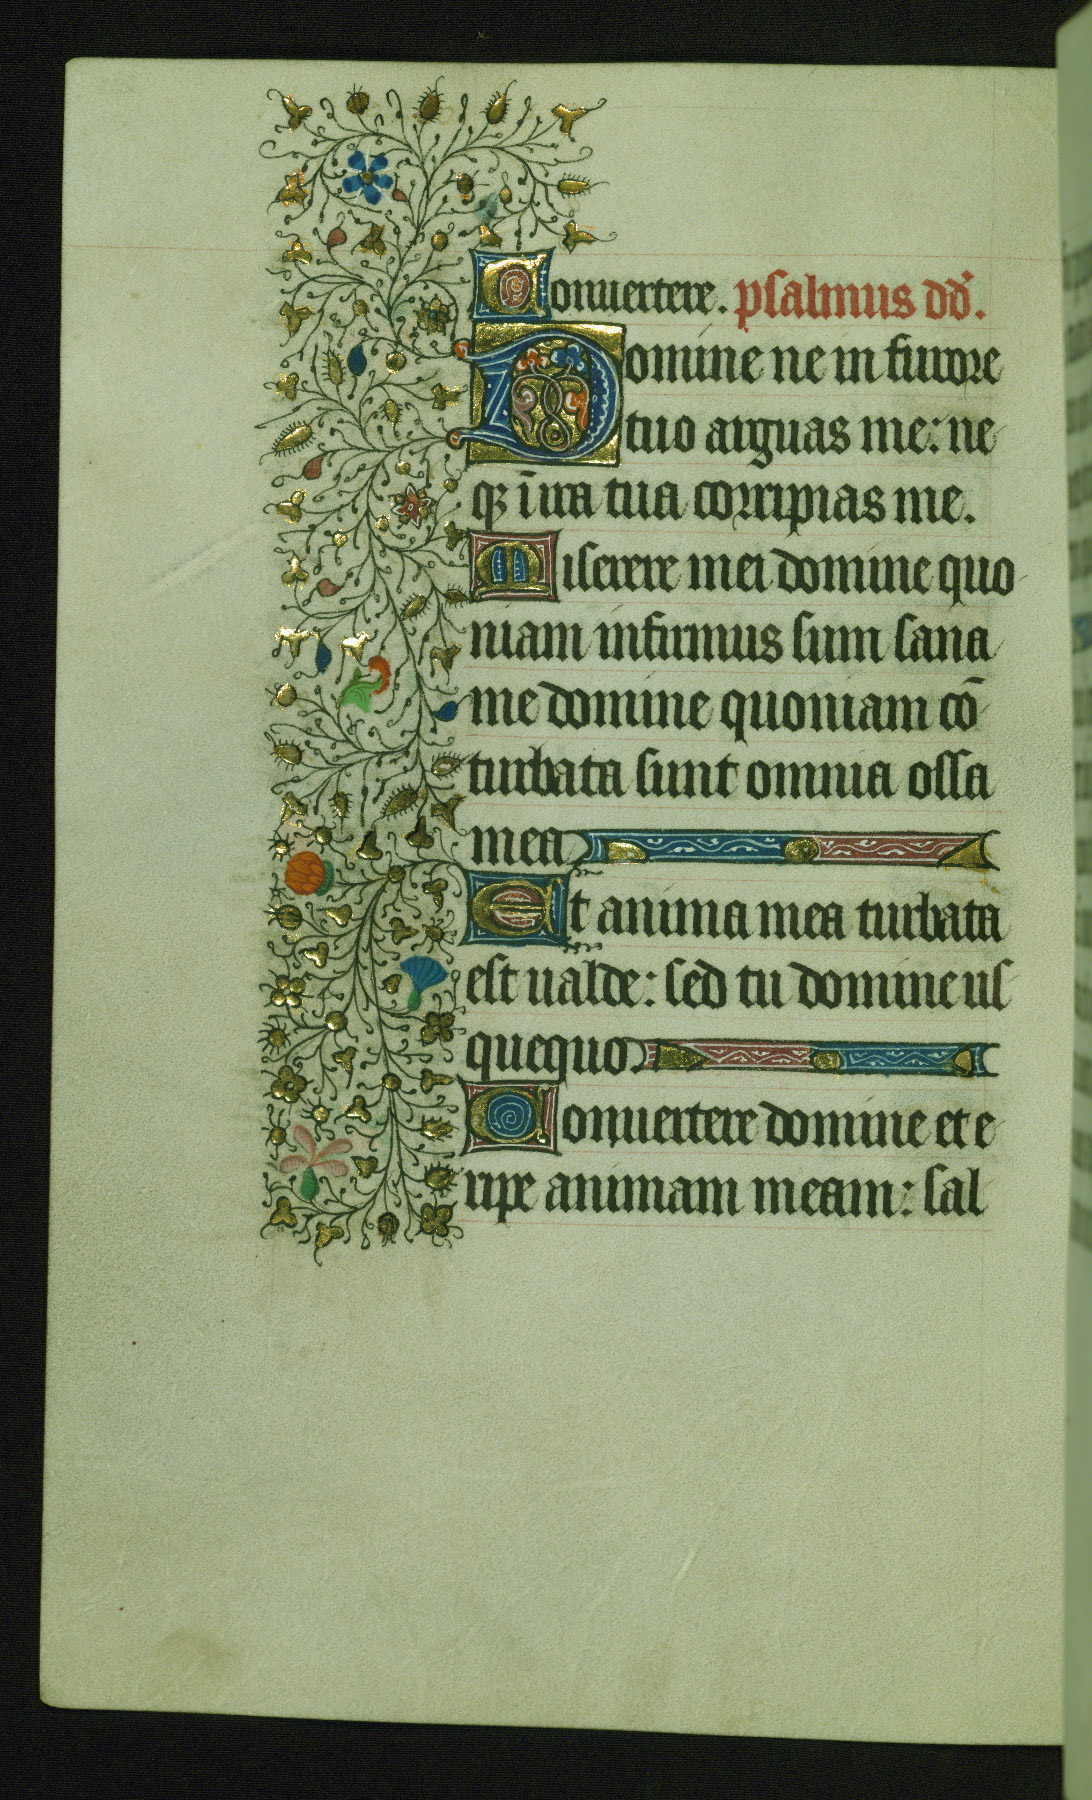 Conuertere. psalmus dd.
Domine ne in furore
tuo arguas me: ne
qȝ ī ira tua corripias me.
Miserere mei domine quo
niam infirmus sum sana
me domine quoniam cō
turbata sunt omnia ossa
mea
Et anima mea turbata
est ualde: sed tu domine us
quequo
Conuertere domine et e
ripe animam meam: sal